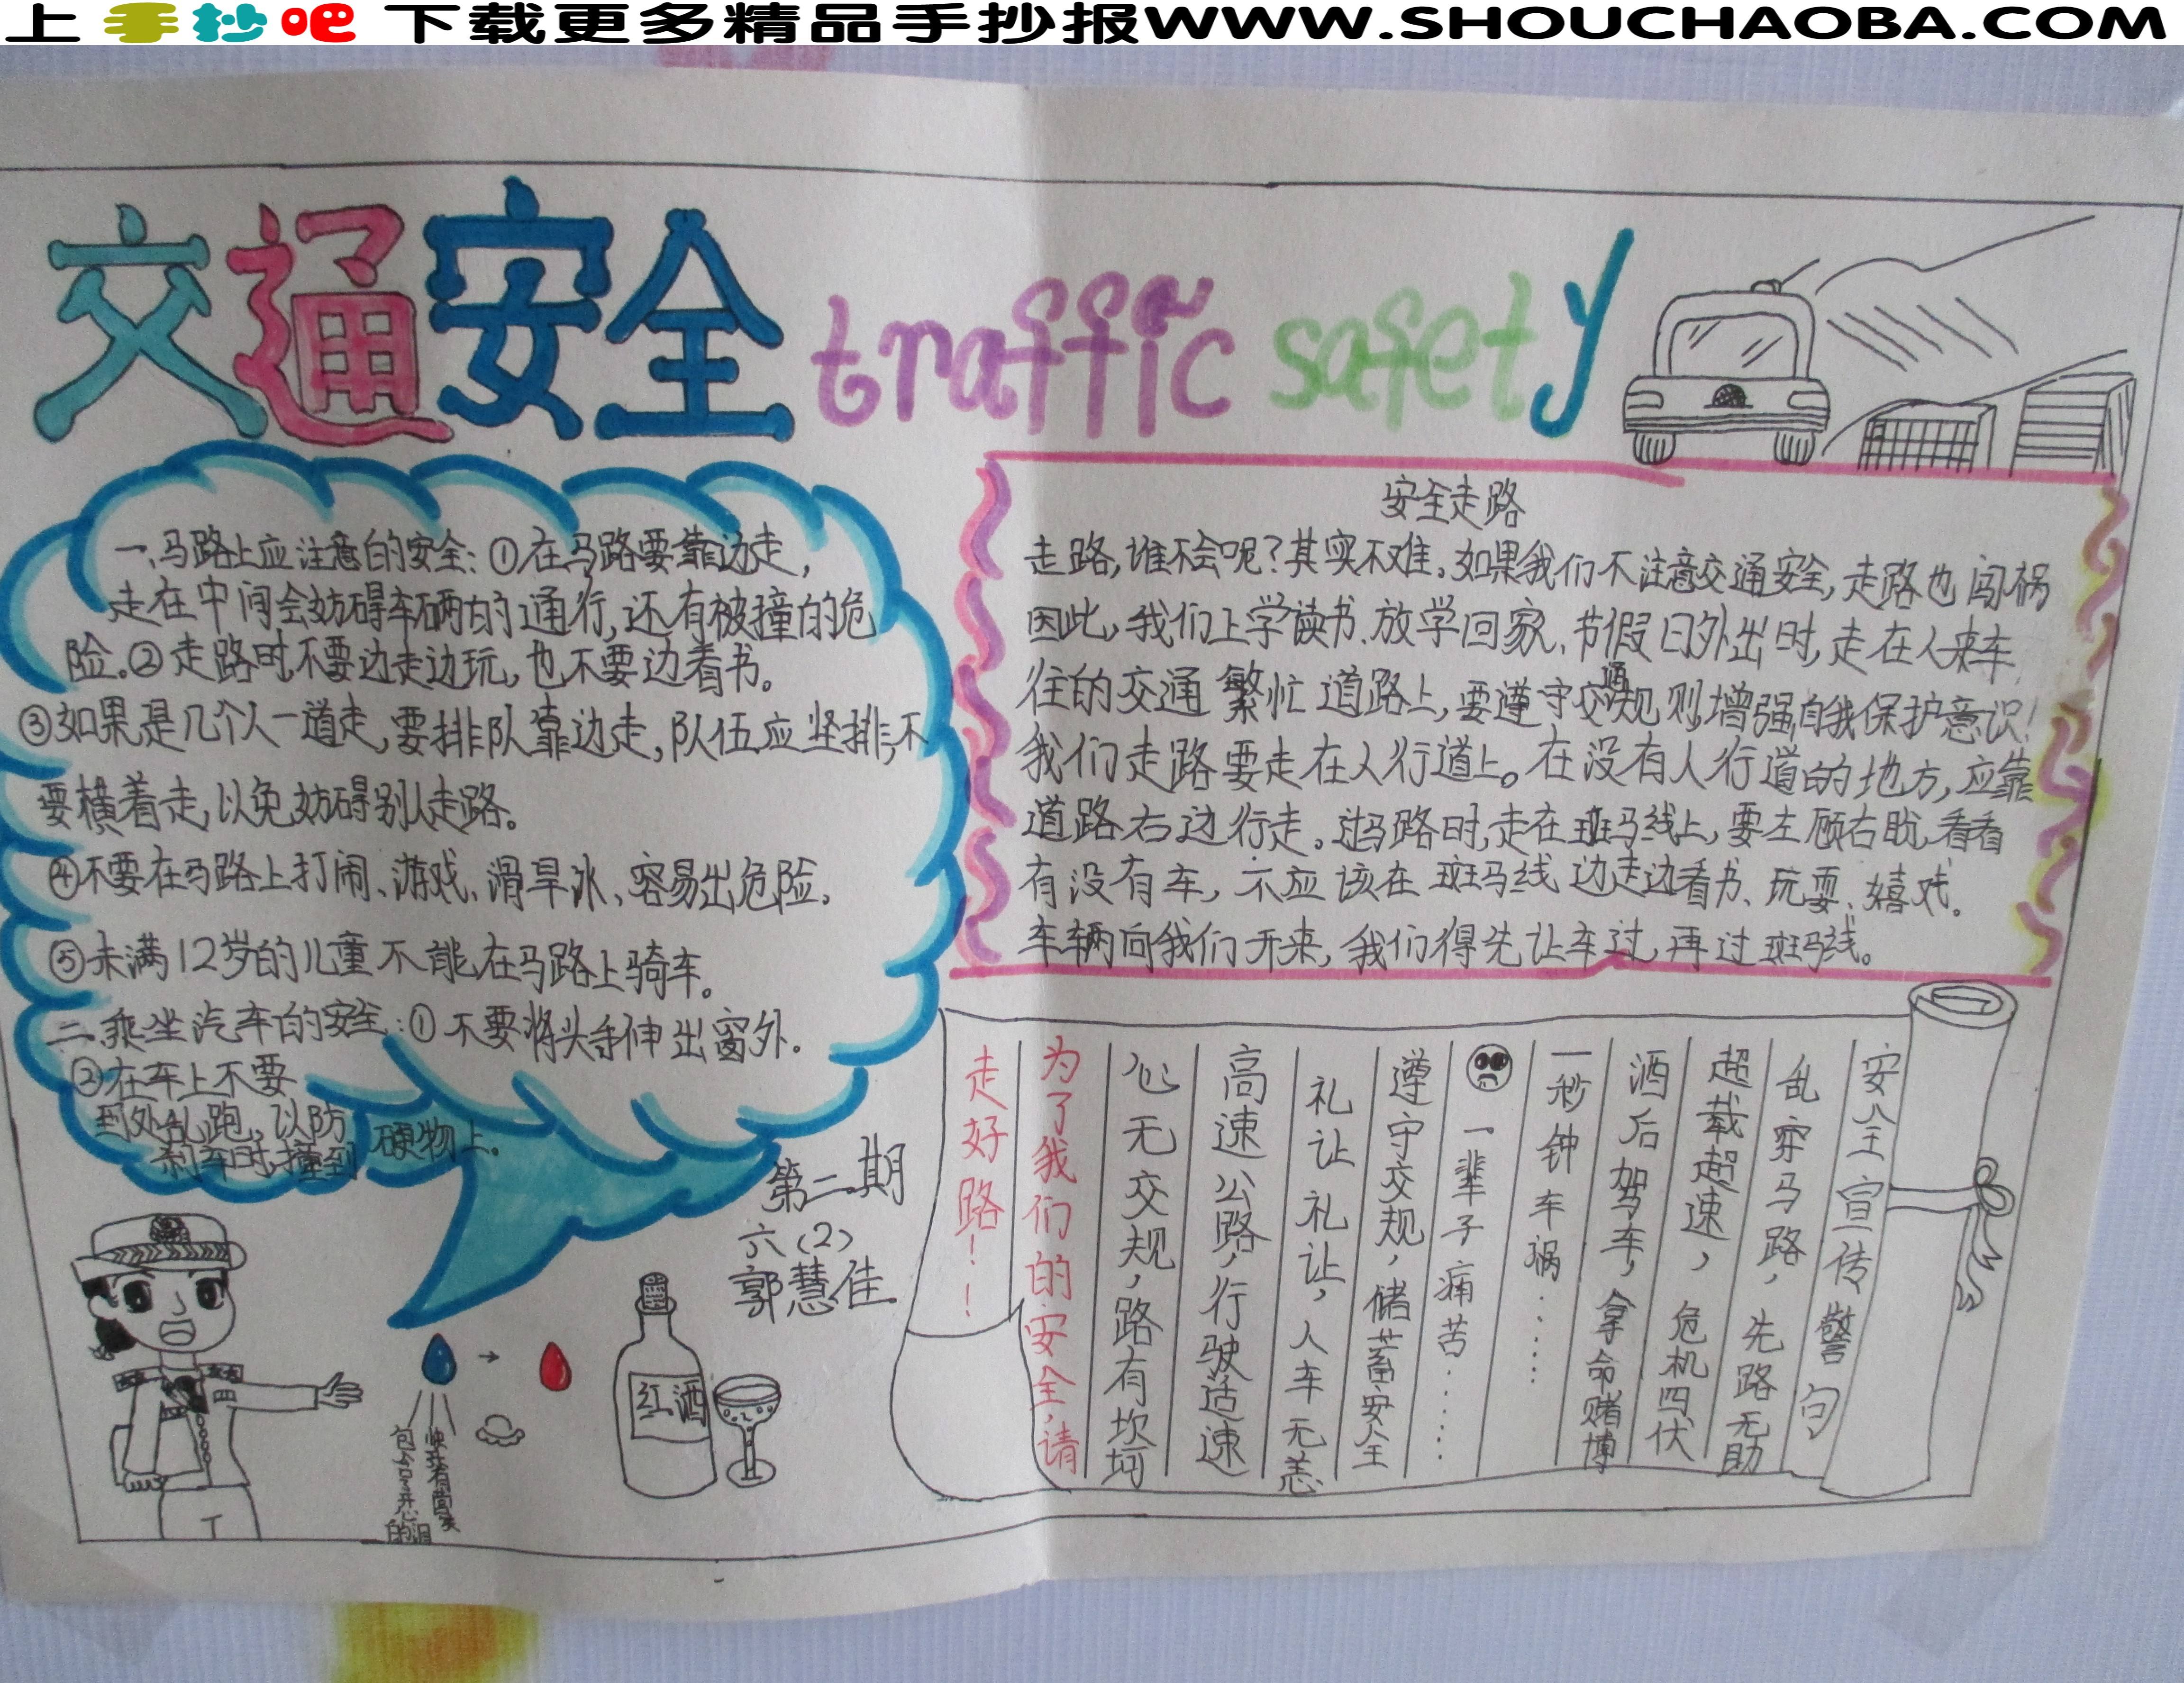 上手抄吧 下载更多精品手抄报WWW.SHOUCHAOBA.COM
交通安全 traffic safety
一、马路上应注意的安全:①在马路要靠边走,
走在中间会妨碍车辆的通行,还有被撞的危
险.②走路时,不要边走边玩,也不要边看书。
③如果是几个人一道走,要排队靠边走,队伍应竖排,不
要横着走,以免妨碍别人走路。
④不要在马路上打闹、游戏、滑旱冰、容易出危险.
⑤未满12岁的儿童不能在马路上骑车。
二.乘坐汽车的安全:①不要将头手伸出窗外.
②在车上不要
到处乱跑,以防
刹车时,撞到硬物上.
第二期
六(2)
郭慧佳
红酒
安全走路
走路,谁不会呢?其实不难。如果我们不注意交通安全,走路也闯祸
因此,我们上学读书.放学回家、节假日外出时,走在人来车
往的交通繁忙道路上,要遵守交通规则,增强自我保护意识!
我们走路要走在人行道上。在没有人行道的地方,应靠
道路右边行走.过马路时,走在斑马线上,要左顾右盼,看看
有没有车,不应该在斑马线边走边看书、玩耍、嬉戏.
车辆向我们开来,我们得先让车过,再过斑马线。
安全宣传警句
乱穿马路,先路无助
超载超速,危机四伏
酒后驾车,拿命赌博
一秒钟车祸......
一辈子痛苦......
遵守交规,储蓄安全
礼让礼让,人车无恙
高速公路,行驶适速
心无交规,路有坎坷
为了我们的安全,请
走好路!!